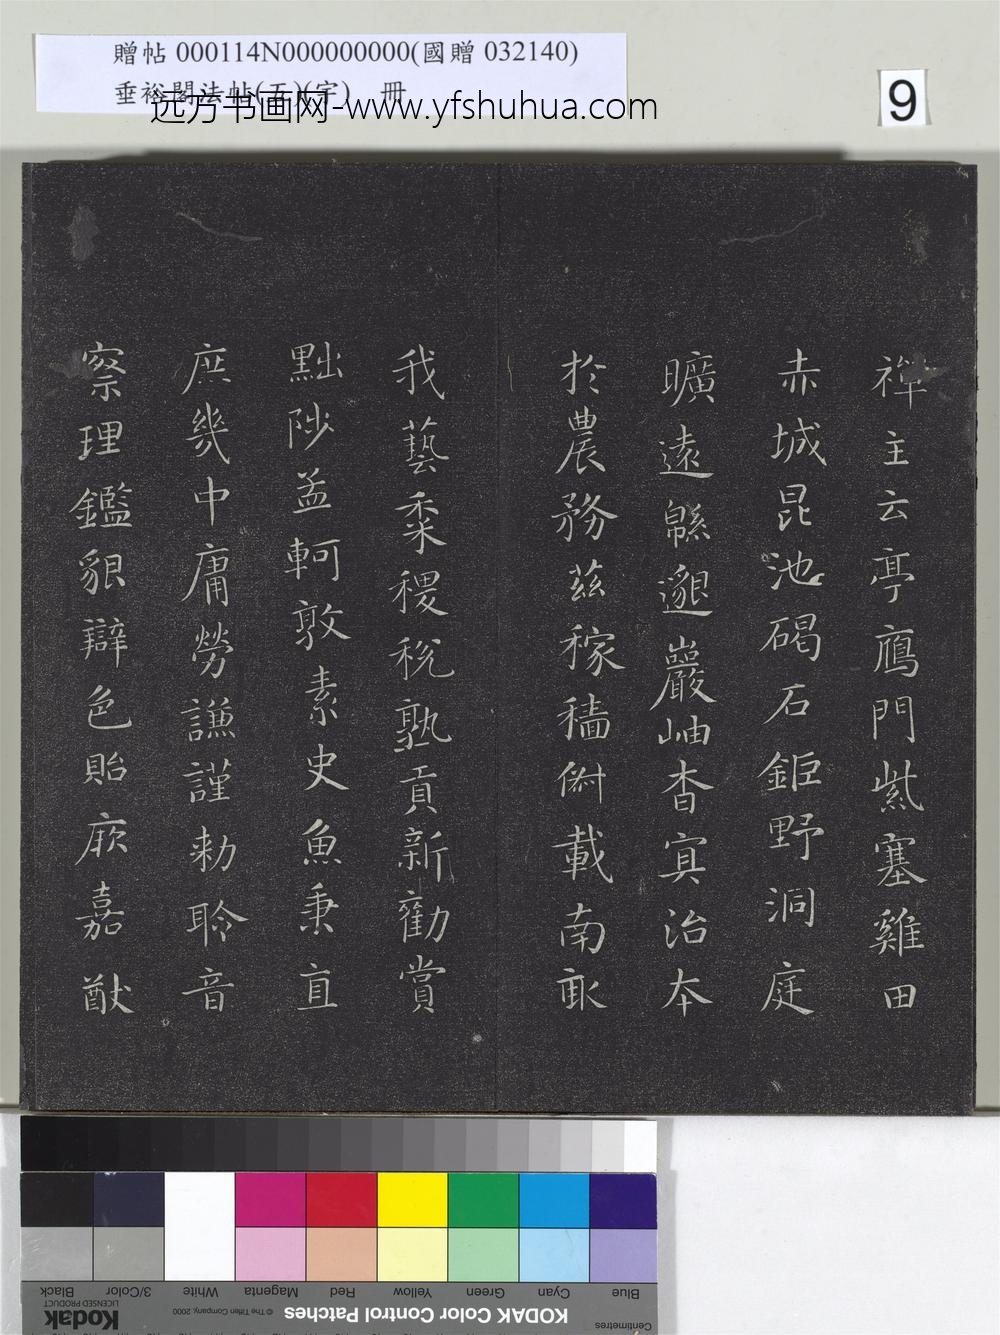 贈帖 000114N000000000(國贈 032140)
垂裕閣法帖(五)(字) 冊
远方书画网-www.yfshuhua.com
9
禪主云亭鴈門紫塞雞田
赤城昆池碣石鉅野洞庭
曠遠緜邈巖岫杳冥治本
於農務茲稼穡俶載南畝
我藝黍稷稅熟貢新勸賞
黜陟孟軻敦素史魚秉直
庶幾中庸勞謙謹勅聆音
察理鑑貌辯色貽厥嘉猷
Blue Cyan Green Yellow Red Magenta White 3/Color Black
Centimetres
KODAK Color Control Patches
© The Tiffen Company, 2000
Kodak
LICENSED PRODUCT